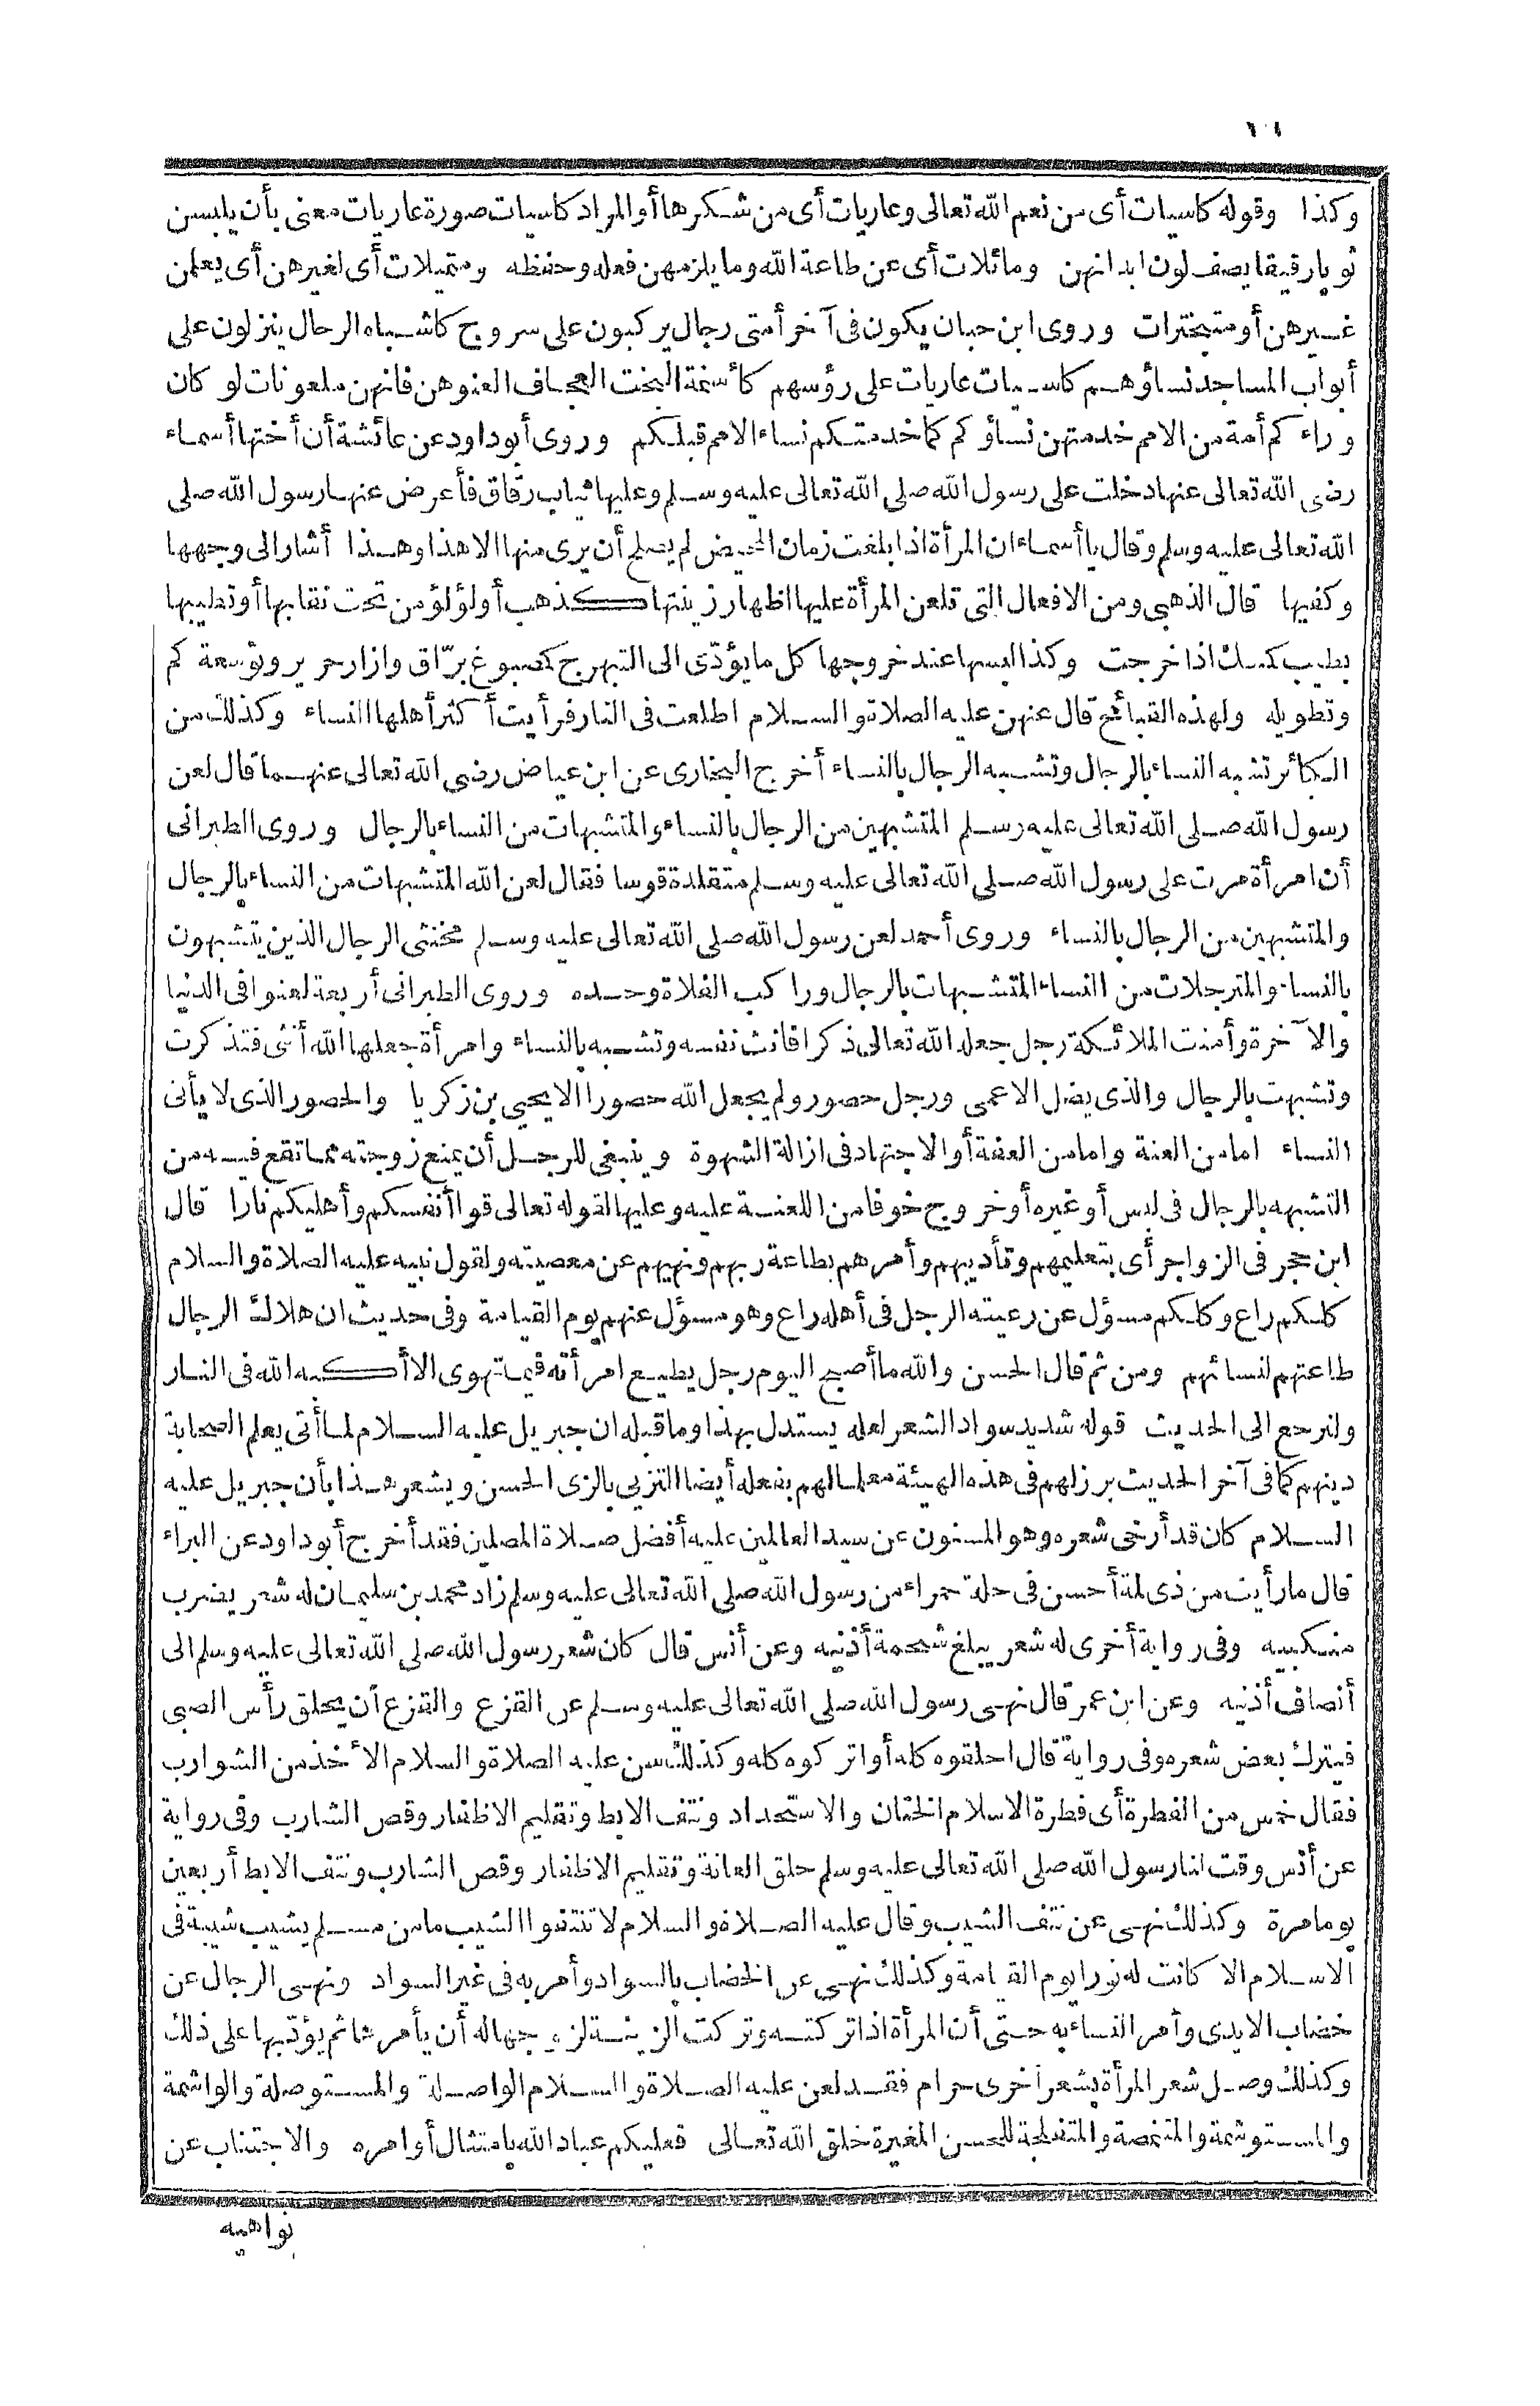 ١٦
وكذا وقوله كاسيات أى من نعم الله تعالى وعاريات أى من شكرها أو المراد كاسيات صورة عاريات معنى بأن يلبسن
ثوبا رقيقا يصف لون ابدانهن ومائلات أى عن طاعة الله وما يلزمهن فعله وحفظه ومميلات أى لغيرهن أى يعلمن
غيرهن أو متبخترات وروى ابن حبان يكون فى آخر أمتى رجال يركبون على سروج كاشباه الرحال ينزلون على
أبواب المساجد نساؤهم كاسيات عاريات على رؤسهم كأسنمة البخت العجاف العنوهن فانهن ملعونات لو كان
وراءكم أمة من الامم خدمتهن نساؤكم كما خدمتكم نساء الامم قبلكم وروى أبو داود عن عائشة أن أختها أسماء
رضى الله تعالى عنها دخلت على رسول الله صلى الله تعالى عليه وسلم وعليها ثياب رقاق فأعرض عنها رسول الله صلى
الله تعالى عليه وسلم وقال يا أسماء ان المرأة اذا بلغت زمان الحيض لم يصلح أن يرى منها الا هذا وهذا أشار الى وجهها
وكفيها قال الذهبى ومن الافعال التى تلعن المرأة عليها اظهار زينتها كذهب أو لؤلؤ من تحت نقابها أو تطيبها
بطيب كمسك اذا خرجت وكذا لبسها عند خروجها كل ما يؤدّى الى التبهرج كمصبوغ برّاق وازار حرير وتوسعة كم
وتطويله ولهذه القبائح قال عنهن عليه الصلاة والسلام اطلعت فى النار فرأيت أكثر أهلها النساء وكذلك من
الكبائر تشبه النساء بالرجال وتشبه الرجال بالنساء أخرج البخارى عن ابن عياض رضى الله تعالى عنهما قال لعن
رسول الله صلى الله تعالى عليه وسلم المتشبهين من الرجال بالنساء والمتشبهات من النساء بالرجال وروى الطبرانى
أن امرأة مرت على رسول الله صلى الله تعالى عليه وسلم متقلدة قوسا فقال لعن الله المتشبهات من النساء بالرجال
والمتشبهين من الرجال بالنساء وروى أحمد لعن رسول الله صلى الله تعالى عليه وسلم مخنثى الرجال الذين يتشبهون
بالنساء والمترجلات من النساء المتشبهات بالرجال وراكب الفلاة وحده وروى الطبرانى أربعة لعنوا فى الدنيا
والآخرة وأمنت الملائكة رجل جعله الله تعالى ذكرا فانث نفسه وتشبه بالنساء وامرأة جعلها الله أنثى فتذكرت
وتشبهت بالرجال والذى يضل الاعمى ورجل حصور ولم يجعل الله حصورا الا يحيى بن زكريا والحصور الذى لا يأتى
النساء اما من العنة واما من العفة أو الاجتهاد فى ازالة الشهوة وينبغى للرجل أن يمنع زوجته مما تقع فيه من
التشبه بالرجال فى لبس أو غيره أو خروج خوفا من اللعنة عليه وعليها لقوله تعالى قوا أنفسكم وأهليكم نارا قال
ابن حجر فى الزواجر أى بتعليمهم وتأديبهم وأمرهم بطاعة ربهم ونهيهم عن معصيته ولقول نبيه عليه الصلاة والسلام
كلكم راع وكلكم مسؤل عن رعيته الرجل فى أهله راع وهو مسؤل عنهم يوم القيامة وفى حديث ان هلاك الرجال
طاعتهم لنسائهم ومن ثم قال الحسن والله ما أصبح اليوم رجل يطيع امرأته فيما تهوى الا أكبه الله فى النار
ولنرجع الى الحديث قوله شديد سواد الشعر لعله يستدل بهذا وما قبله ان جبريل عليه السلام لما أتى يعلم الصحابة
دينهم كما فى آخر الحديث برز لهم فى هذه الهيئة معلما لهم بفعله أيضا التزيى بالزى الحسن ويشعر هذا بأن جبريل عليه
السلام كان قد أرخى شعره وهو المسنون عن سيد العالمين عليه أفضل صلاة المصلين فقد أخرج أبو داود عن البراء
قال ما رأيت من ذى لمة أحسن فى حلة حمراء من رسول الله صلى الله تعالى عليه وسلم زاد محمد بن سليمان له شعر يضرب
منكبيه وفى رواية أخرى له شعر يبلغ شحمة أذنيه وعن أنس قال كان شعر رسول الله صلى الله تعالى عليه وسلم الى
أنصاف أذنيه وعن ابن عمر قال نهى رسول الله صلى الله تعالى عليه وسلم عن القزع والقزع أن يحلق رأس الصبى
فيترك بعض شعره وفى رواية قال احلقوه كله أو اتركوه كله وكذلك سن عليه الصلاة والسلام الأخذ من الشوارب
فقال خمس من الفطرة أى فطرة الاسلام الختان والاستحداد ونتف الابط وتقليم الاظفار وقص الشارب وفى رواية
عن أنس وقت لنا رسول الله صلى الله تعالى عليه وسلم حلق العانة وتقليم الاظفار وقص الشارب ونتف الابط أربعين
يوما مرة وكذلك نهى عن نتف الشيب وقال عليه الصلاة والسلام لا تنتفوا الشيب ما من مسلم يشيب شيبة فى
الاسلام الا كانت له نورا يوم القيامة وكذلك نهى عن الخضاب بالسواد وأمر به فى غير السواد ونهى الرجال عن
خضاب الايدى وأمر النساء به حتى أن المرأة اذا تركته وتركت الزينة لزوجها له أن يأمرها ثم يؤدّبها على ذلك
وكذلك وصل شعر المرأة بشعر أخرى حرام فقد لعن عليه الصلاة والسلام الواصلة والمستوصلة والواشمة
والمستوشمة والمتنمصة والمتفلجة للحسن المغيرة خلق الله تعالى فعليكم عباد الله بامتثال أوامره والاجتناب عن
نواهيه